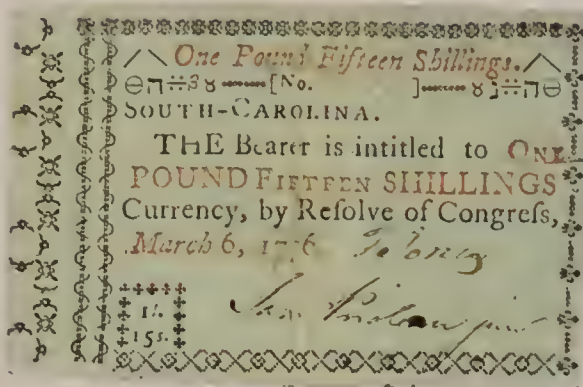 One Pound Fifteen Shillings.
[No. ]
SOUTH-CAROLINA.
THE Bearer is intitled to ONE
POUND FIFTEEN SHILLINGS
Currency, by Reſolve of Congreſs,
March 6, 1776
1l.
15s.